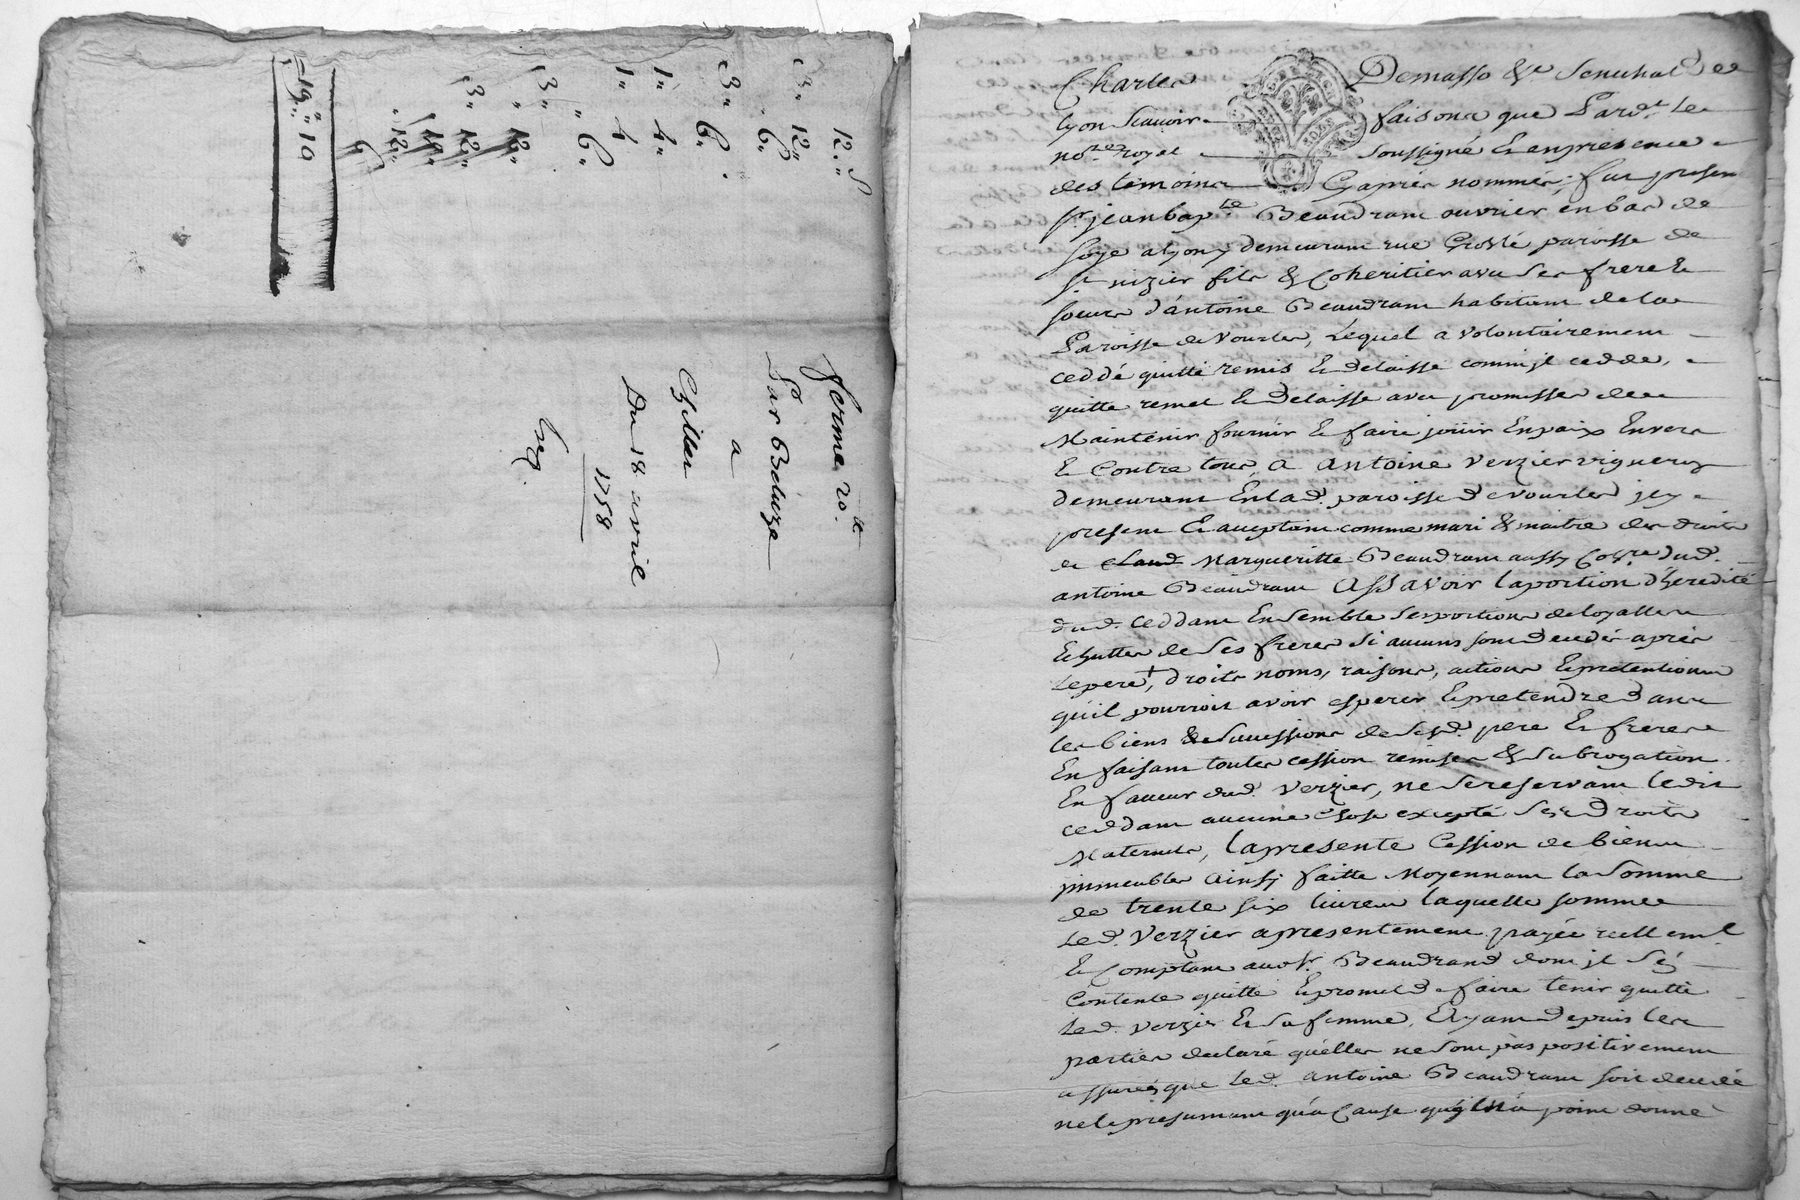 12.. s
3,, 12,,
,, 6,,
3,, 6,,
1,, 4,,
1,, 4
,, 6,,
3,,
,, 12,,
3,, 12,,
,, 18,,
,, 12,,
6
19,, 10
ferme 20.te
Par Beluze
a
Giller
Du 18 avril
1758
Charles Demasso &r Senechal de
Lyon Scavoir faisons que Pard.t le
no.re royal soussigné & en presence
des temoins Cy aprés nommés fut present
Sr. jean bap.te Beaudrant ouvrier en bas de
soye a Lyon y demeurant rue Grolée paroisse de
St nizier fils & Coheritier avec ses frere &
soeurs d'antoine Beaudrant habitant de la
Paroisse de Vourles, Lequel a volontairement
ceddé quitté remis & delaissé comm'jl cedde,
quitte remet & delaisse avec promesse de
Maintenir fournir & faire joüir En paix Envers
& Contre tous, a antoine verzier vigneron
demeurant En lad. paroisse de vourles jcy
present & acceptant comme mari & maitre des droits
de Margueritte Beaudrant aussy Coh.re dud.
antoine Beaudrant Assavoir la portion d'heredité
dud. ceddant Ensemble ses portions de loyalle
Echutte de ses freres si aucuns sont decedés aprés
Le pere +, droits noms, raisons, actions & pretentions
qu'il pourroit avoir esperer & pretendre dans
les biens & successions de sesd. pere & freres
En faisant toutes cession remises & subrogation
En faveur dud. verzier, ne se reservant le dit
ceddant aucune chose excepté ses droits
Maternels, la presente Cession de biens
jmmeubles ainsy faitte Moyennant la somme
de trente six livres laquelle somme
Led. verzier a presentement payée reellem.t
& Comptant aud. Sr. Beaudrand dont jl s'es
Contente quitte & promet de faire tenir quitte
Led. verzier & sa femme, Et yant depuis les
parties declaré qu'elles ne sont pas positivement
assurées que led. antoine Beaudrant soit decedé
ne le presumant qu'a Cause qu'il n'a point donné